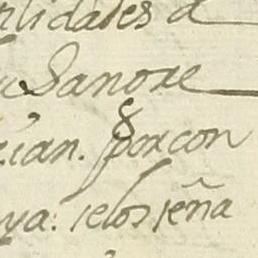 lidades a
Sanore
cian. por con
ya: ielos jeña